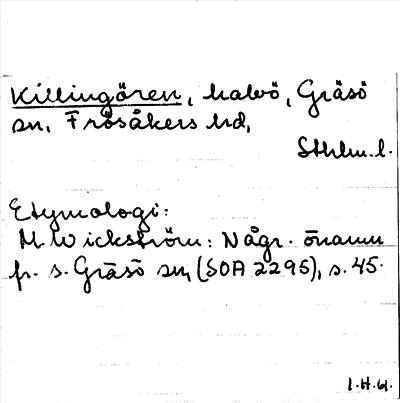 Killingören, halvö, Gräsö
sn, Frösåkers hd,
Sthlm. l.
Etymologi:
M Wickström: Någr. önamn
fr. s. Gräsö sn, (SOA 2295), s. 45.
I.H.H.